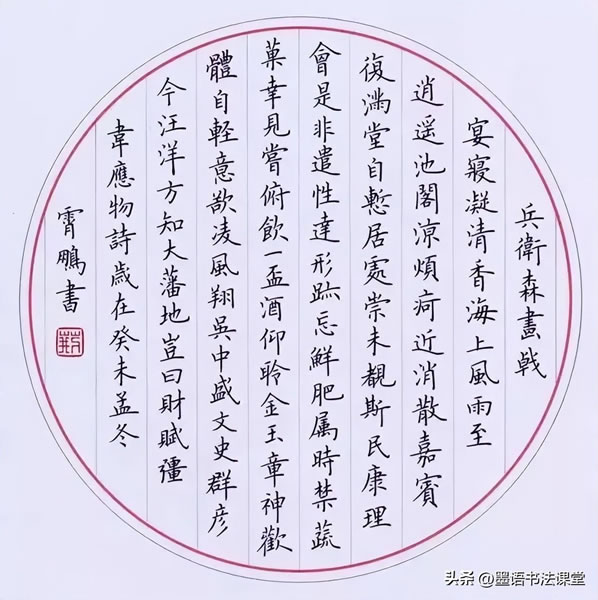 兵衛森畫戟
宴寢凝清香海上風雨至
逍遥池閣涼煩疴近消散嘉賓
復滿堂自慙居處崇未覩斯民康理
會是非遣性達形跡忘鮮肥属時禁蔬
菓幸見嘗俯飲一盃酒仰聆金玉章神歡
體自軽意欲凌風翔吳中盛文史群彦
今汪洋方知大藩地豈曰財賦彊
韋應物詩歳在癸未孟冬
霄鵬書
头条 @墨语书法课堂